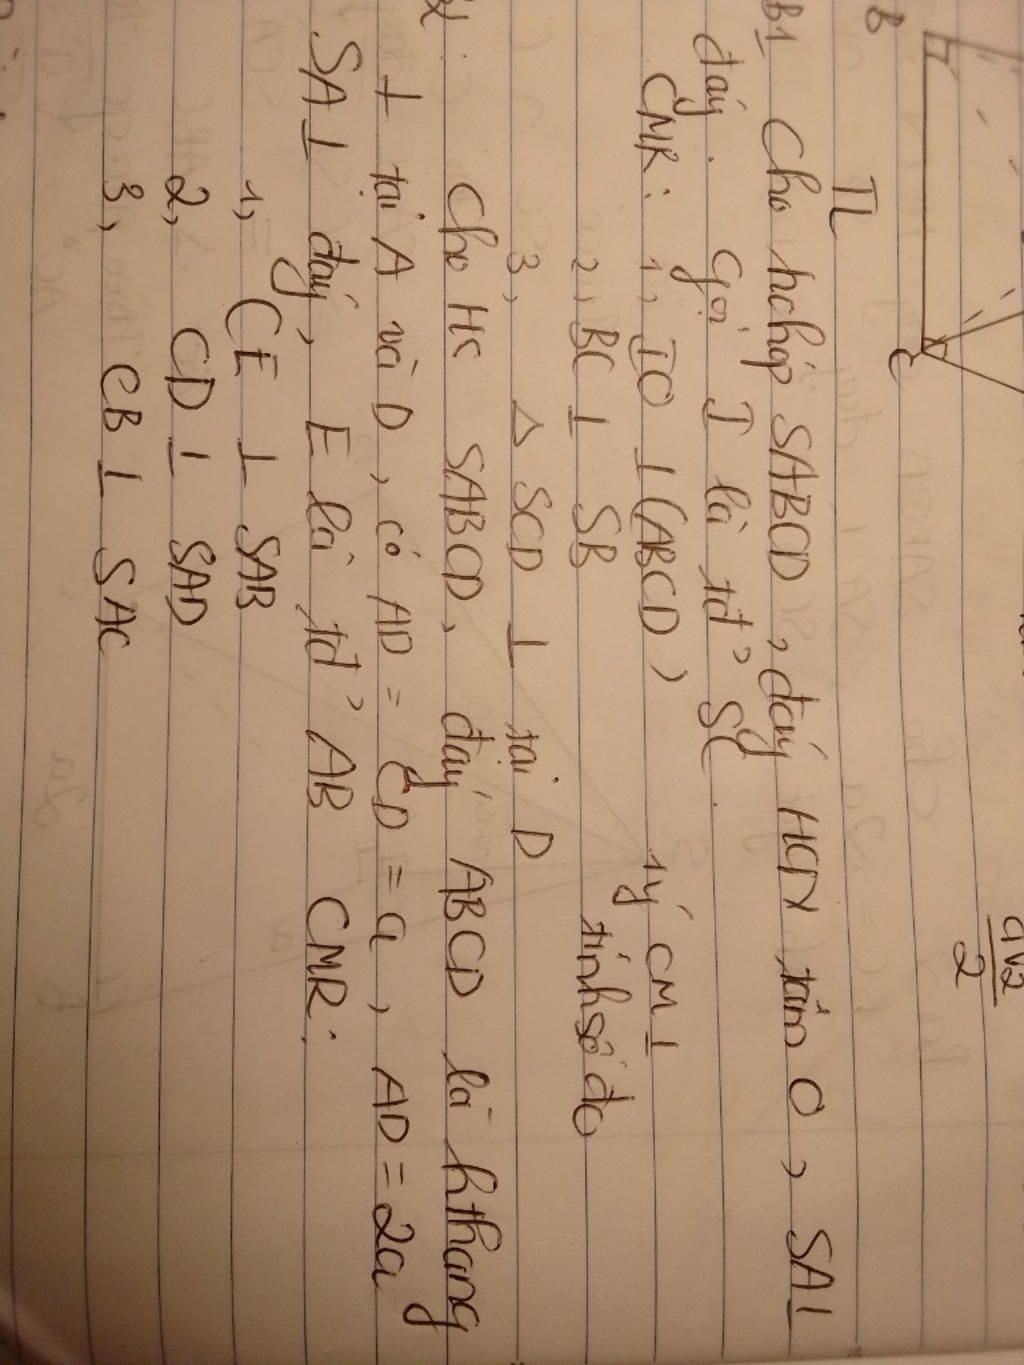 B
C
a√2
2
TL
B1 Cho hchóp SABCD, đáy HCN tâm O, SA⊥
đáy. Gọi I là tđ' SC.
CMR: 1, IO ⊥ (ABCD)
1ý CM ⊥
2, BC ⊥ SB
tính số đo
3, △ SCD ⊥ tại D
2: Cho HC SABCD, đáy ABCD là hthang
⊥ tại A và D, có AD = CD = a, AD = 2a
SA ⊥ đáy, E là tđ' AB CMR:
1, CE ⊥ SAB
2, CD ⊥ SAD
3, CB ⊥ SAC